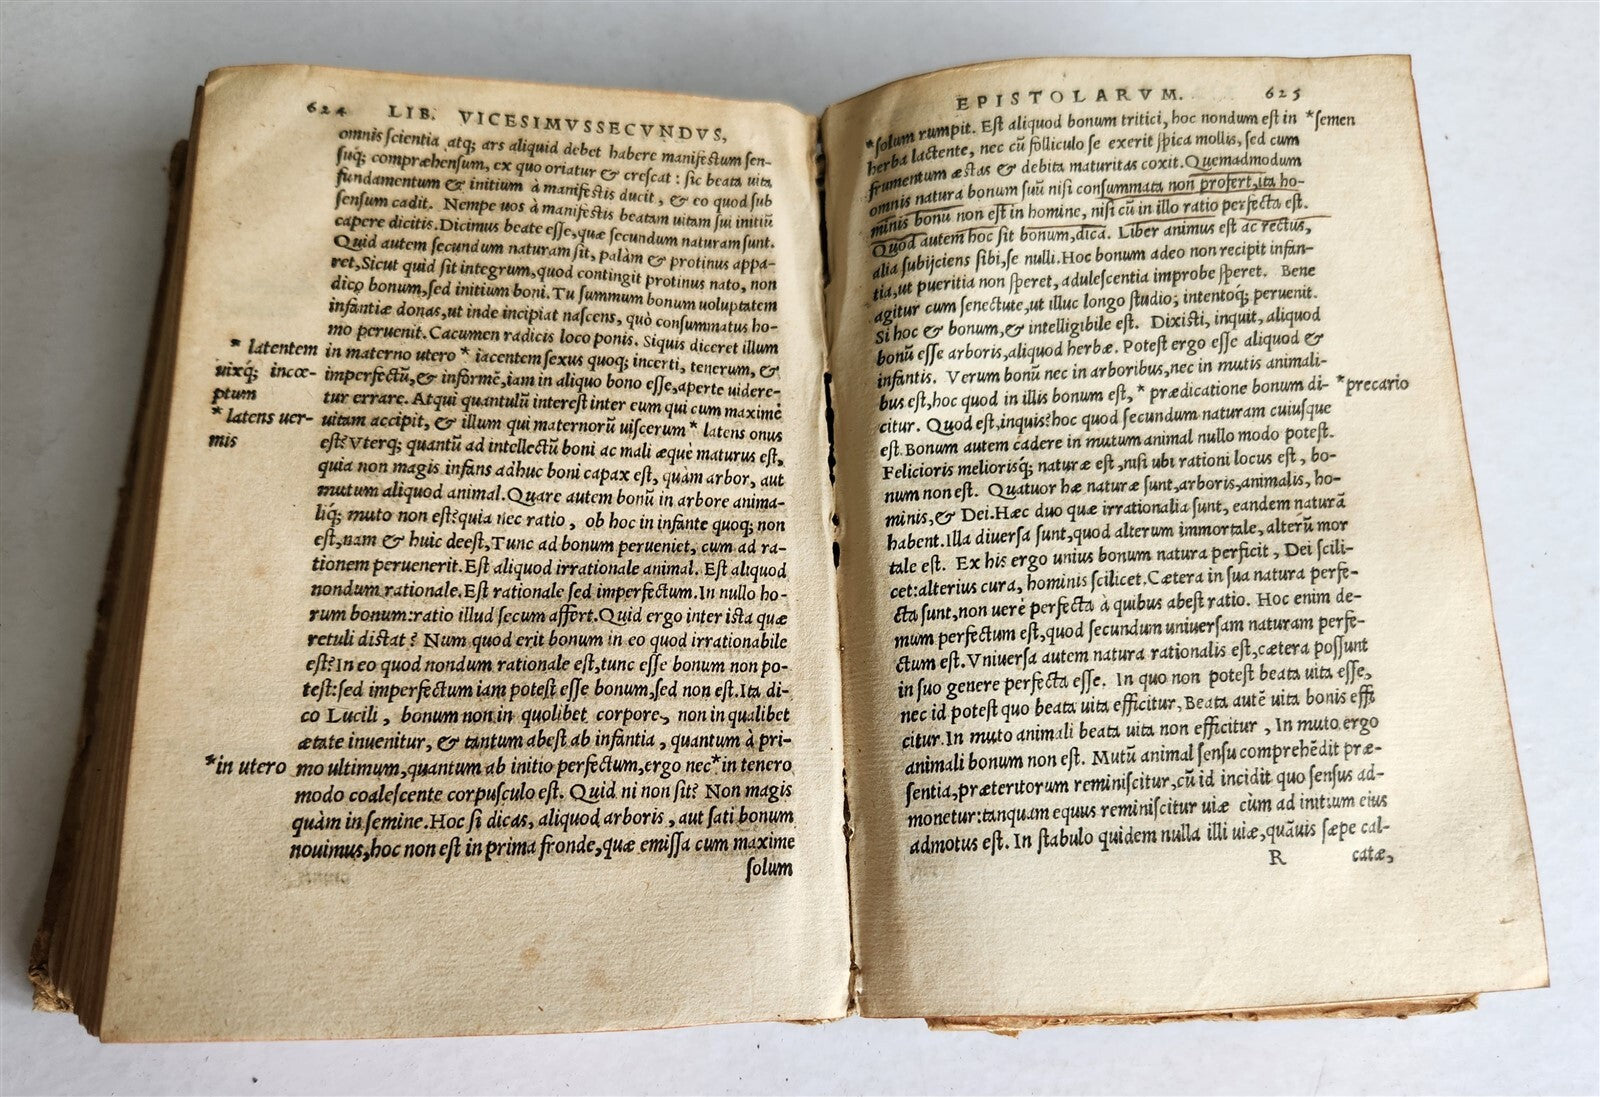 624 LIB. VICESIMVSSECVNDVS.
omnis scientia atq; ars aliquid debet habere manifestum sen-
suq; compræhensum, ex quo oriatur & crescat : sic beata uita
fundamentum & initium à manifestis ducit, & eo quod sub
sensum cadit. Nempe uos à manifestis beatam uitam sui initiũ
capere dicitis. Dicimus beate esse, quæ secundum naturam sunt.
Quid autem secundum naturam sit, palàm & protinus appa-
ret, Sicut quid sit integrum, quod contingit protinus nato, non
dico bonum, sed initium boni. Tu summum bonum uoluptatem
infantiæ donas, ut inde incipiat nascens, quò consummatus ho-
mo peruenit. Cacumen radicis loco ponis. Siquis diceret illum
* latentem in materno utero * iacentem sexus quoq; incerti, tenerum, &
uixq; incœ- imperfectũ, & informẽ, iam in aliquo bono esse, aperte uidere-
ptum tur errare. Atqui quantulũ interest inter eum qui cum maximè
* latens uer- uitam accipit, & illum qui maternorũ uiscerum * latens onus
mis est? Vterq; quantũ ad intellectũ boni ac mali æquè maturus est,
quia non magis infans adhuc boni capax est, quàm arbor, aut
mutum aliquod animal. Quare autem bonũ in arbore anima-
liq; muto non est? quia nec ratio, ob hoc in infante quoq; non
est, nam & huic deest, Tunc ad bonum perueniet, cum ad ra-
tionem peruenerit. Est aliquod irrationale animal. Est aliquod
nondum rationale. Est rationale sed imperfectum. In nullo ho-
rum bonum: ratio illud secum affert. Quid ergo inter ista quæ
retuli distat? Num quod erit bonum in eo quod irrationabile
est? In eo quod nondum rationale est, tunc esse bonum non po-
test: sed imperfectum iam potest esse bonum, sed non est. Ita di-
co Lucili, bonum non in quolibet corpore, non in qualibet
ætate inuenitur, & tantum abest ab infantia, quantum à pri-
*in utero mo ultimum, quantum ab initio perfectum, ergo nec * in tenero
modo coalescente corpusculo est. Quid ni non sit? Non magis
quàm in semine. Hoc si dicas, aliquod arboris, aut sati bonum
nouimus, hoc non est in prima fronde, quæ emissa cum maxime
solum
EPISTOLARVM. 625
*solum rumpit. Est aliquod bonum tritici, hoc nondum est in *semen
herba lactente, nec cũ folliculo se exerit spica mollis, sed cum
frumentum æstas & debita maturitas coxit. Quemadmodum
omnis natura bonum suũ nisi consummata non profert, ita ho-
minis bonũ non est in homine, nisi cũ in illo ratio perfecta est.
Quod autem hoc sit bonum, dicã. Liber animus est ac rectus,
alia subijciens sibi, se nulli. Hoc bonum adeo non recipit infan-
tia, ut pueritia non speret, adulescentia improbe speret. Bene
agitur cum senectute, ut illuc longo studio, intentoq; peruenit.
Si hoc & bonum, & intelligibile est. Dixisti, inquit, aliquod
bonũ esse arboris, aliquod herbæ. Potest ergo esse aliquod &
infantis. Verum bonũ nec in arboribus, nec in mutis animali-
bus est, hoc quod in illis bonum est, * prædicatione bonum di- *precario
citur. Quod est, inquis? hoc quod secundum naturam cuiusque
est. Bonum autem cadere in mutum animal nullo modo potest.
Felicioris meliorisq; naturæ est, nisi ubi rationi locus est, bo-
num non est. Quatuor hæ naturæ sunt, arboris, animalis, ho-
minis, & Dei. Hæc duo quæ irrationalia sunt, eandem naturã
habent. Illa diuersa sunt, quod alterum immortale, alterũ mor
tale est. Ex his ergo unius bonum natura perficit, Dei scili-
cet: alterius cura, hominis scilicet. Cætera in sua natura perfe-
cta sunt, non uerè perfecta à quibus abest ratio. Hoc enim de-
mum perfectum est, quod secundum uniuersam naturam perfe-
ctum est. Vniuersa autem natura rationalis est, cætera possunt
in suo genere perfecta esse. In quo non potest beata uita esse,
nec id potest quo beata uita efficitur, Beata autẽ uita bonis effi
citur. In muto animali beata uita non efficitur, In muto ergo
animali bonum non est. Mutũ animal sensu comprehẽdit præ-
sentia, præteritorum reminiscitur, cũ id incidit quo sensus ad-
monetur: tanquam equus reminiscitur uiæ cùm ad initium eius
admotus est. In stabulo quidem nulla illi uiæ, quãuis sæpe cal-
R catæ,